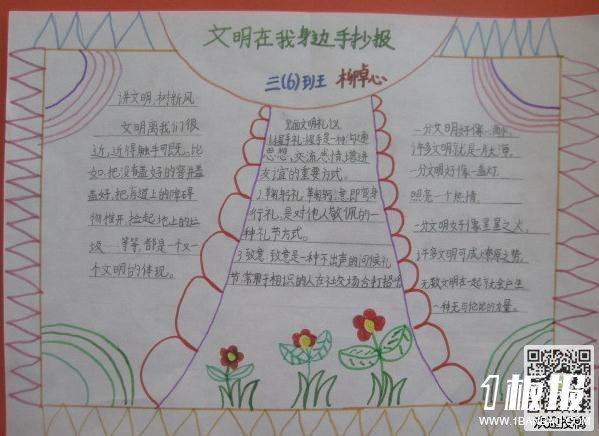 文明在我身边手抄报
三(6)班 柳卓心
讲文明,树新风
文明离我们很
近,近得触手可既。比
如,把没有盖好的窨井盖
盖好,把盲道上的障碍
物推开,捡起地上的垃
圾……等等,都是一个又一
个文明的体现。
见面文明礼仪
1.握手礼:握手是一种沟通
思想,交流感情,增进
友谊的重要方式。
2.鞠躬礼:鞠躬,意即弯身
行礼,是对他人敬佩的一
种礼节方式。
3.致意:致意是一种不出声的问候礼
节,常用于相识的人在社交场合打招呼
一分文明好像一滴水,
许多文明就是一片大海。
一分文明好像一盏灯,
照亮一个热情。
一分文明好像星星之火,
许多文明可成燎原之势。
无数文明在一起就会产生
一种无与伦比的力量。
1板报
WWW.1BANBAO.COM
欢迎投稿